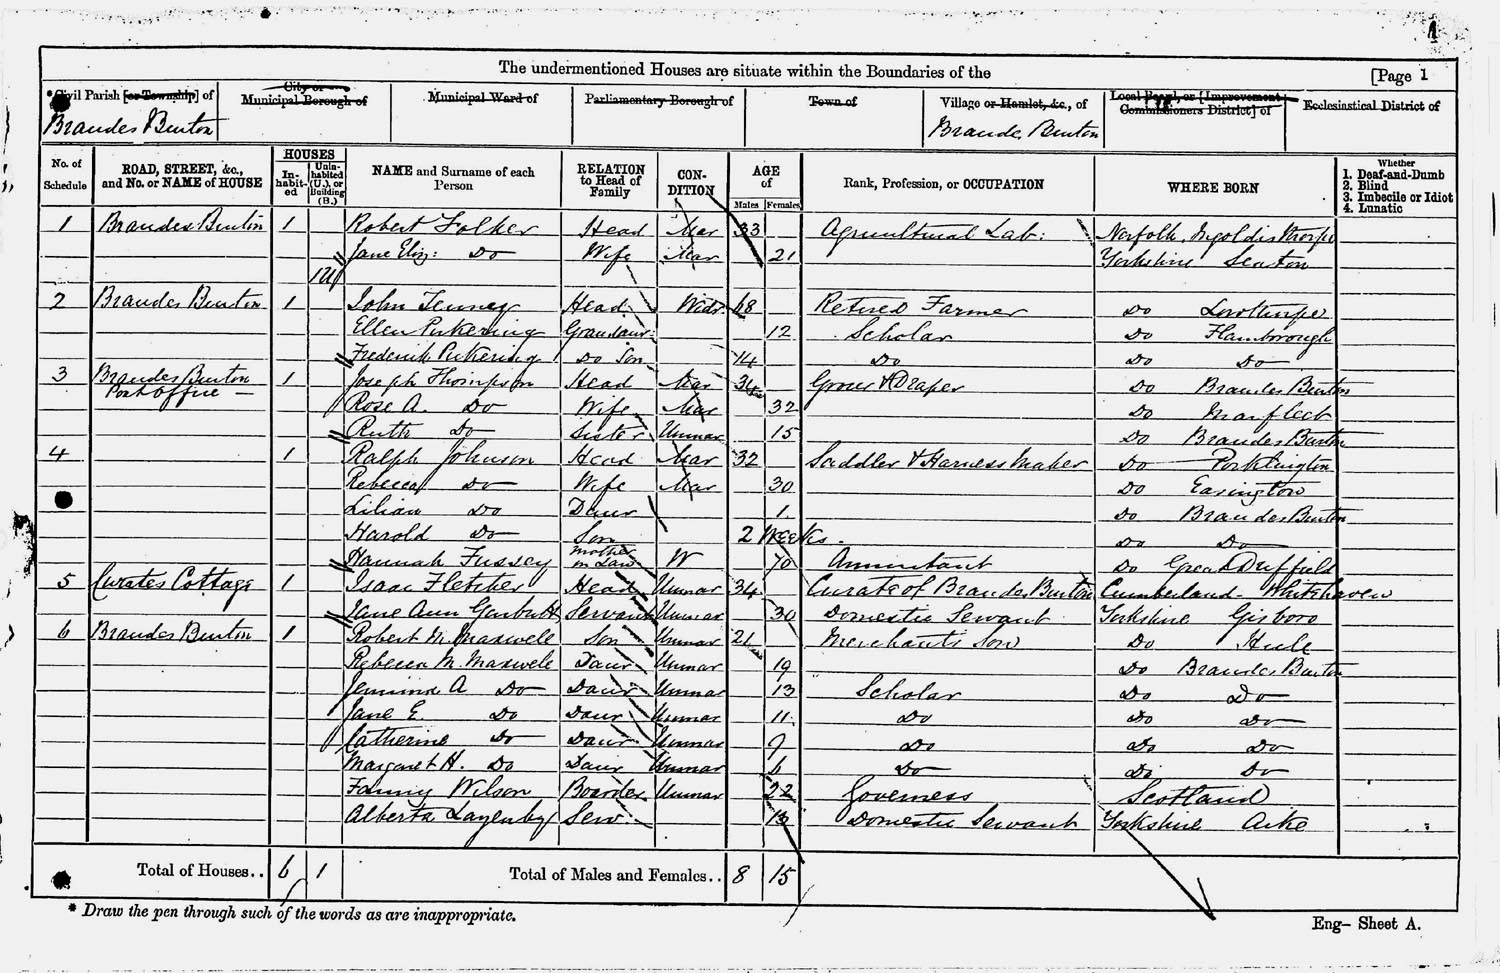 The undermentioned Houses are situate within the Boundaries of the
[Page 1
*Civil Parish [or Township] of
City or Municipal Borough of
Municipal Ward of
Parliamentary Borough of
Town of
Village or Hamlet, &c., of
Local Board, or [Improvement Commissioners District] of
Ecclesiastical District of
Brandes Burton
Brandes Burton
No. of Schedule
ROAD, STREET, &c., and No. or NAME of HOUSE
HOUSES
In-habit-ed
Unin-habited (U.), or Building (B.)
NAME and Surname of each Person
RELATION to Head of Family
CON-DITION
AGE of
Males Females
Rank, Profession, or OCCUPATION
WHERE BORN
Whether
1. Deaf-and-Dumb
2. Blind
3. Imbecile or Idiot
4. Lunatic
1 Brandes Burton 1 Robert Folker Head Mar 33 Agricultural Lab: Norfolk, Ingoldisthorpe
Jane Eliz: Do Wife Mar 21 Yorkshire Seaton
1U
2 Brandes Burton 1 John Head Widr 68 Retired Farmer Do Lowthorpe
Ellen Pickering Grandaur: 12 Scholar Do Flamborough
Frederick Pickering Do Son 14 Do Do Do
3 Brandes Burton 1 Joseph Thompson Head Mar 34 Grocer & Draper Do Brandes Burton
Post Office —
Rose A. Do Wife Mar 32 Do Marfleet
Ruth Do Sister Unmar 15 Do Brandes Burton
4 1 Ralph Johnson Head Mar 32 Saddler & Harness Maker Do Pocklington
Rebecca Do Wife Mar 30 Do Easington
Lilian Do Daur 1 Do Brandes Burton
Harold Do Son 2 Weeks. Do Do
Hannah Fussey Mother in Law W 70 Annuitant Do Great Driffield
5 Curates Cottage 1 Isaac Fletcher Head Unmar 34 Curate of Brandes Burton Cumberland- Whitehaven
Jane Ann Garbutt Servant Unmar 30 Domestic Servant Yorkshire Gisboro
6 Brandes Burton 1 Robert M. Maxwell Son Unmar 21 Merchants Son Do Hull
Rebecca M. Maxwell Daur Unmar 19 Do Brandes Burton
Jemima A Do Daur Unmar 13 Scholar Do Do
Jane E Do Daur Unmar 11 Do Do Do
Catherine Do Daur Unmar 9 Do Do Do
Margaret H. Do Daur Unmar 6 Do Do Do
Fanny Wilson Boarder Unmar 22 Governess Scotland
Alberta Lazenby Serv: 13 Domestic Servant Yorkshire Arke
Total of Houses.. 6 1 Total of Males and Females.. 8 15
* Draw the pen through such of the words as are inappropriate.
Eng- Sheet A.